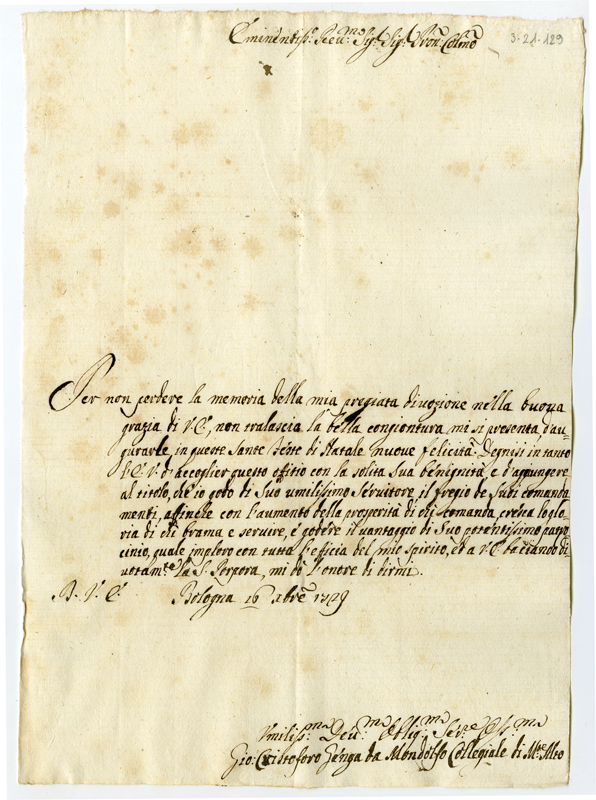 Eminentiss.º Reu.mo Sig.r Sig.r Pron Colmo
3-21-129
Per non perdere la memoria della mia pregiata divozione nella buona
grazia di V.E., non tralascio la bella congiontura mi si presenta d'au-
gurarle in queste Sante Feste di Natale nuove felicità. Degnisi in tanto
l'E.V. d'accoglier questo offitio con la solita Sua benignità, e d'aggiungere
al titolo, ch'io godo di Suo umilissimo Servitore, il fregio de Suoi comanda-
menti, affinche con l'aumento della prosperità di chi comanda cresca la glo-
ria di chi brama e servire, e godere il vantaggio di Suo potentissimo patro-
cinio, quale imploro con tutta l'efficia del mio Spirito, ed a V.E. baciando di-
votam.te la S. Porpora, mi dò l'onore di dirmi.
B. V. E. Bologna 16 Xbre 1729
Vmiliss.mo Deu.mo Oblig.mo Ser.re
Gio: Cristoforo Zenga da Mondolfo Collegiale di M.te Alto